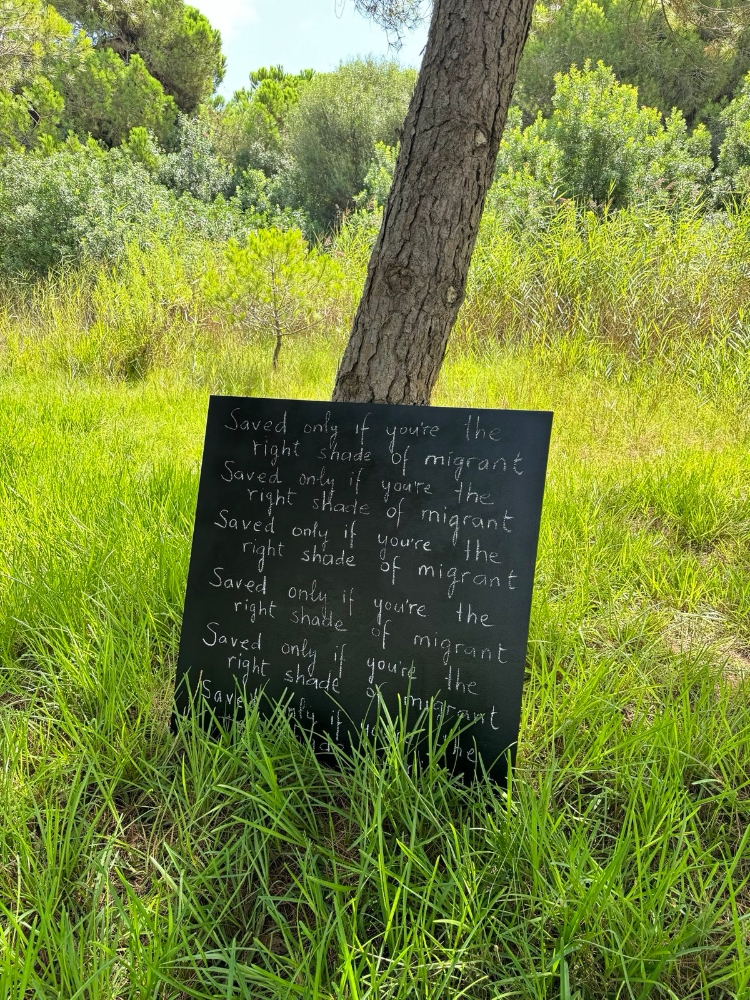 Saved only if you're the
right shade of migrant
Saved only if you're the
right shade of migrant
Saved only if you're the
right shade of migrant
Saved only if you're the
right shade of migrant
Saved only if you're the
right shade of migrant
Saved only if the